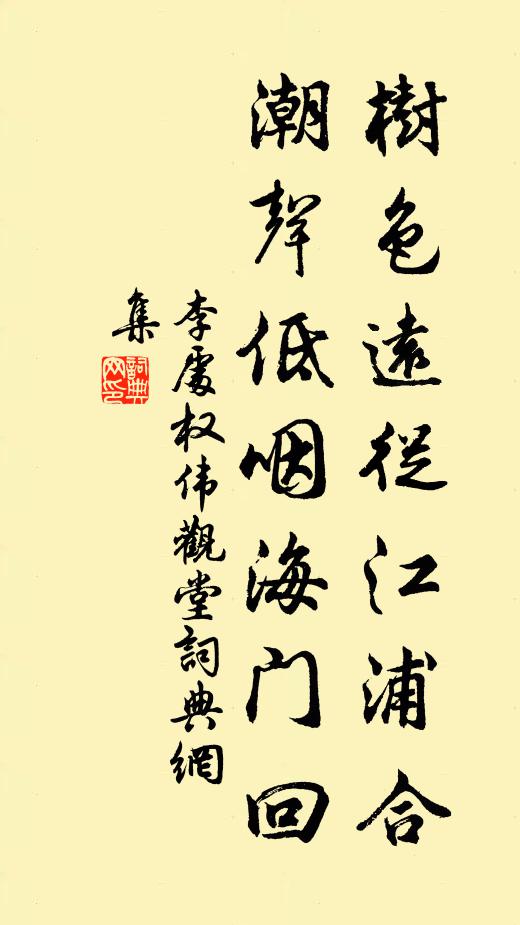 樹色遠從江浦合
潮聲低咽海门回
李處权伟觀堂詞典網
集
詞典网印